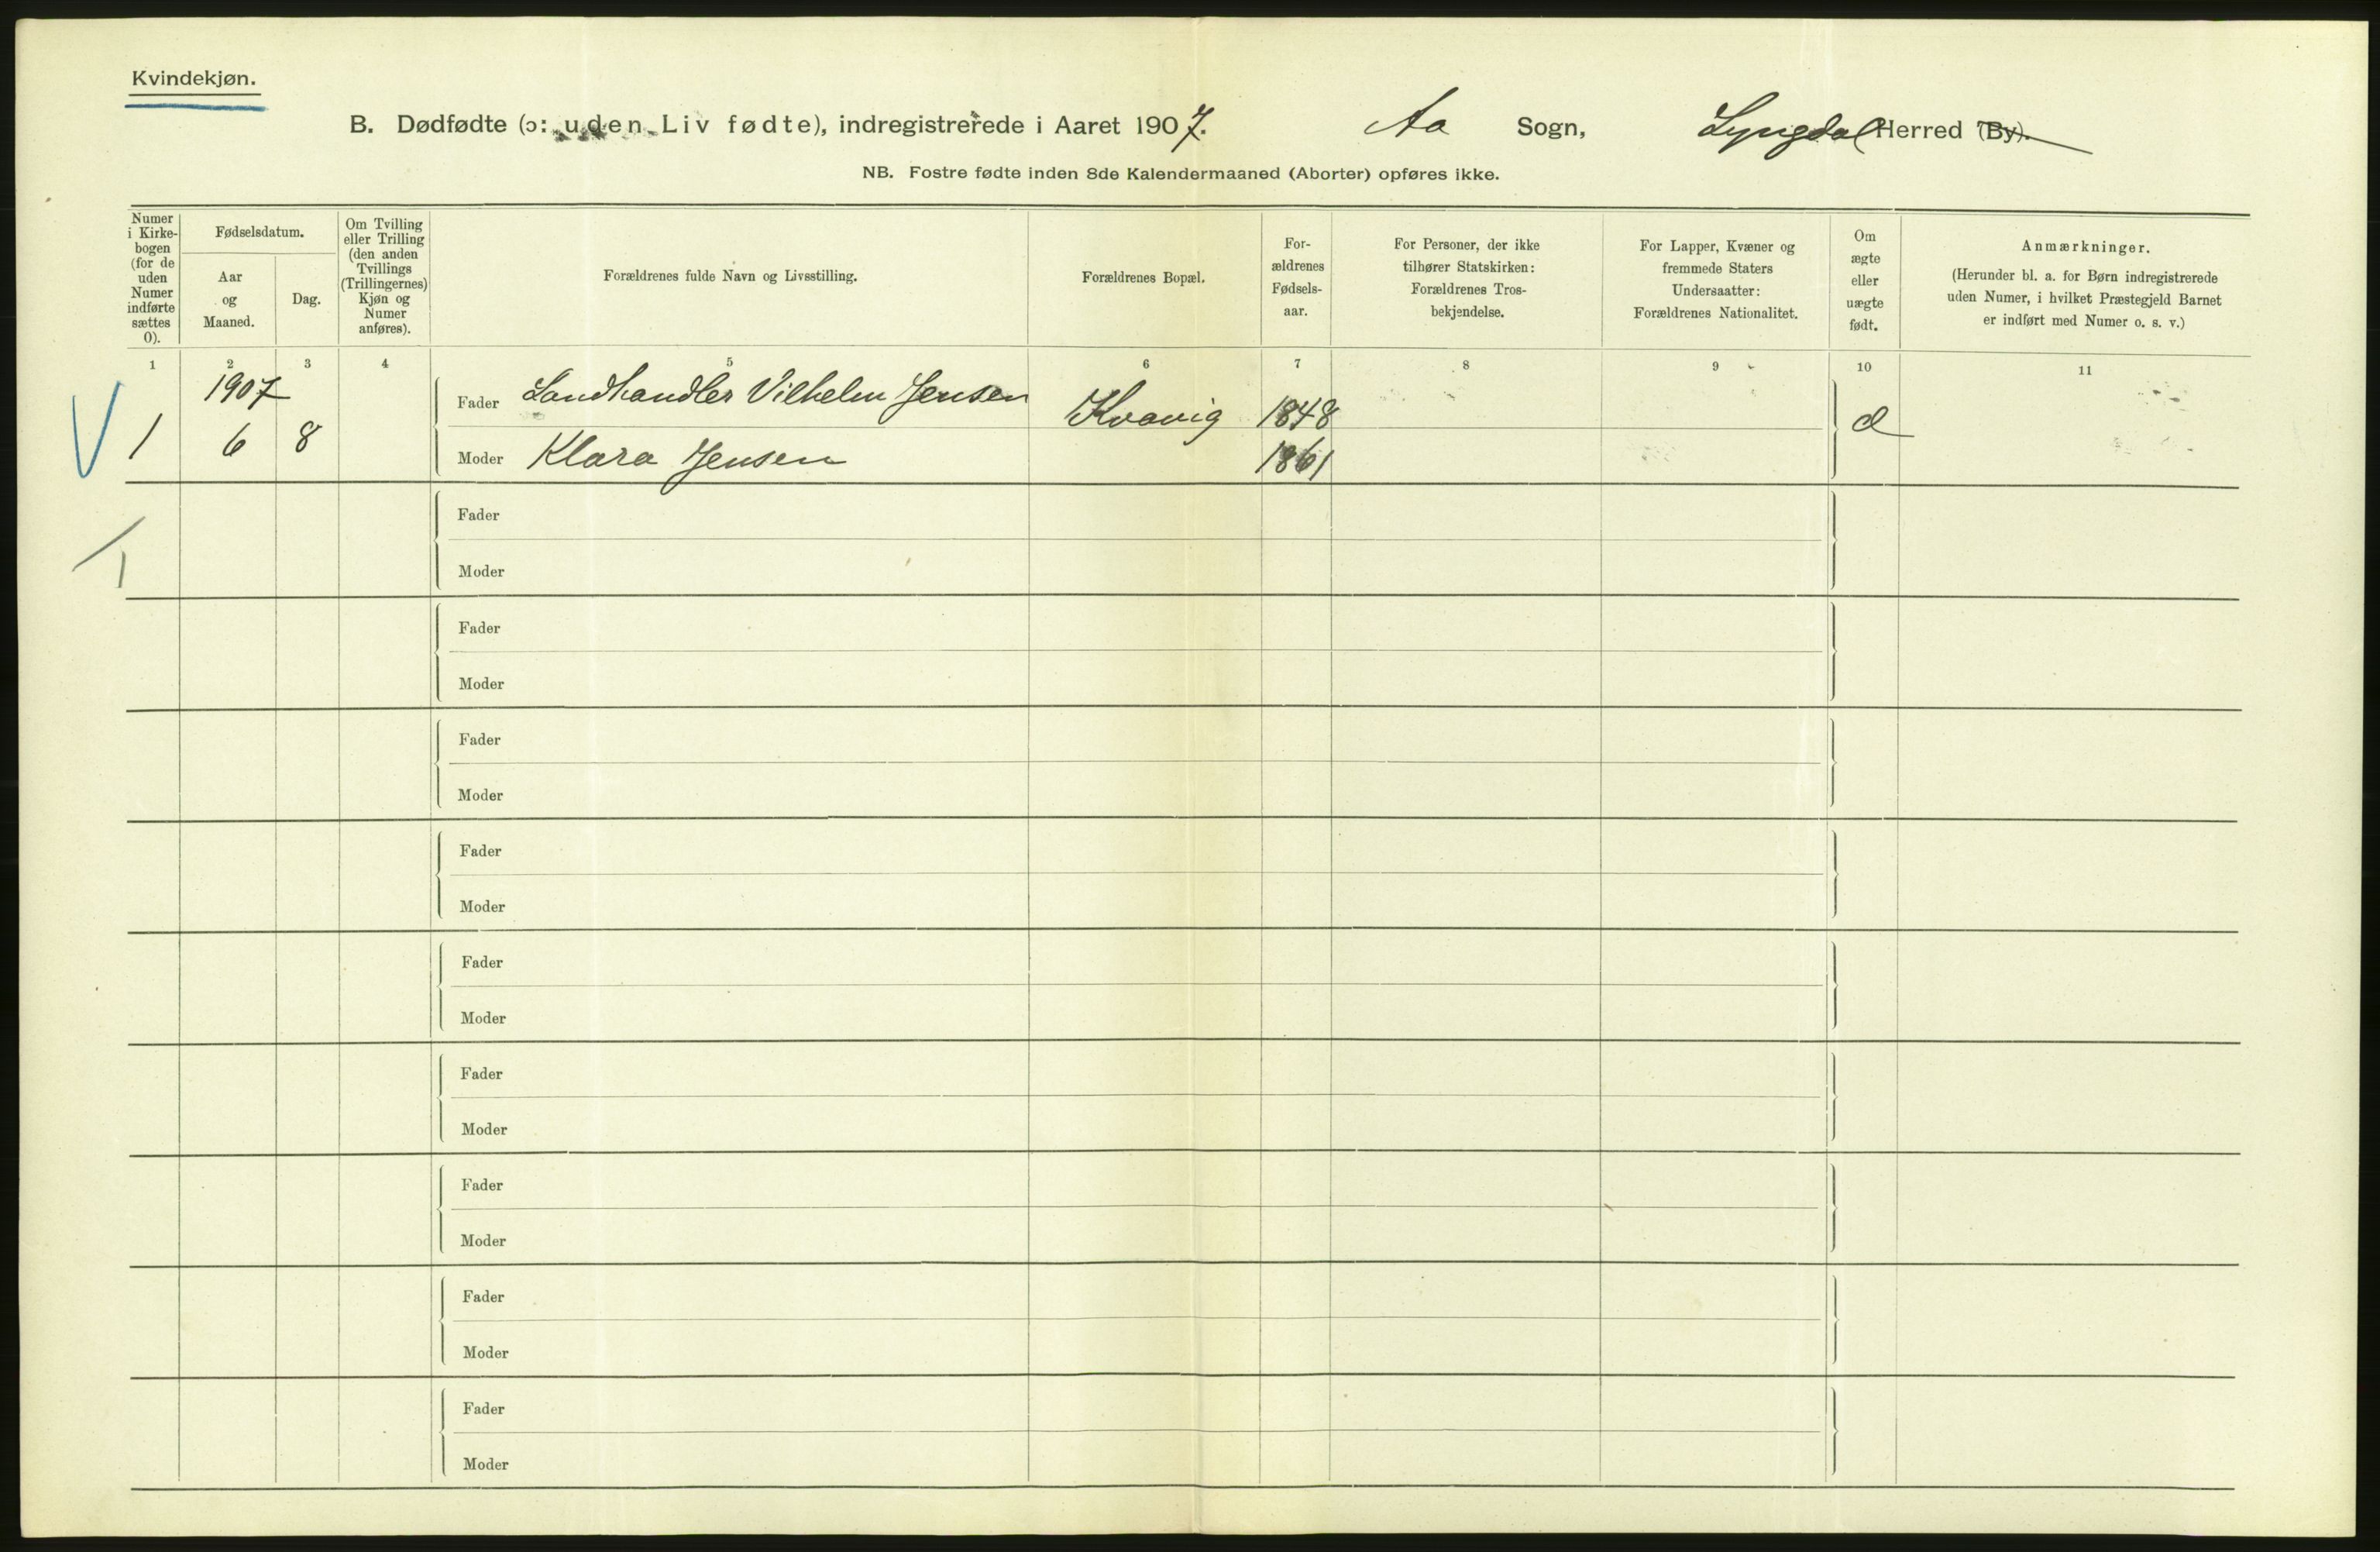 Kvindekjøn.
B. Dødfødte (ɔ: uden Liv fødte), indregistrerede i Aaret 1907. Aa Sogn, Lyngdal Herred (By).
NB. Fostre fødte inden 8de Kalendermaaned (Aborter) opføres ikke.
Numer
i Kirke-
bogen
(for de
uden
Numer
indførte
sættes
0).
Fødselsdatum.
Aar
og
Maaned.
Dag.
Om Tvilling
eller Trilling
(den anden
Tvillings
(Trillingernes)
Kjøn og
Numer
anføres).
Forældrenes fulde Navn og Livsstilling.
Forældrenes Bopæl.
For-
ældrenes
Fødsels-
aar.
For Personer, der ikke
tilhører Statskirken:
Forældrenes Tros-
bekjendelse.
For Lapper, Kvæner og
fremmede Staters
Undersaatter:
Forældrenes Nationalitet.
Om
ægte
eller
uægte
født.
Anmærkninger.
(Herunder bl. a. for Børn indregistrerede
uden Numer, i hvilket Præstegjeld Barnet
er indført med Numer o. s. v.)
1 2 3 4 5 6 7 8 9 10 11
1907
Fader Landhandler Vilhelm Jensen Kvavig 1848
1 6 8
Moder Klara Jensen 1861
Fader
Moder
Fader
Moder
Fader
Moder
Fader
Moder
Fader
Moder
Fader
Moder
Fader
Moder
Fader
Moder
Fader
Moder